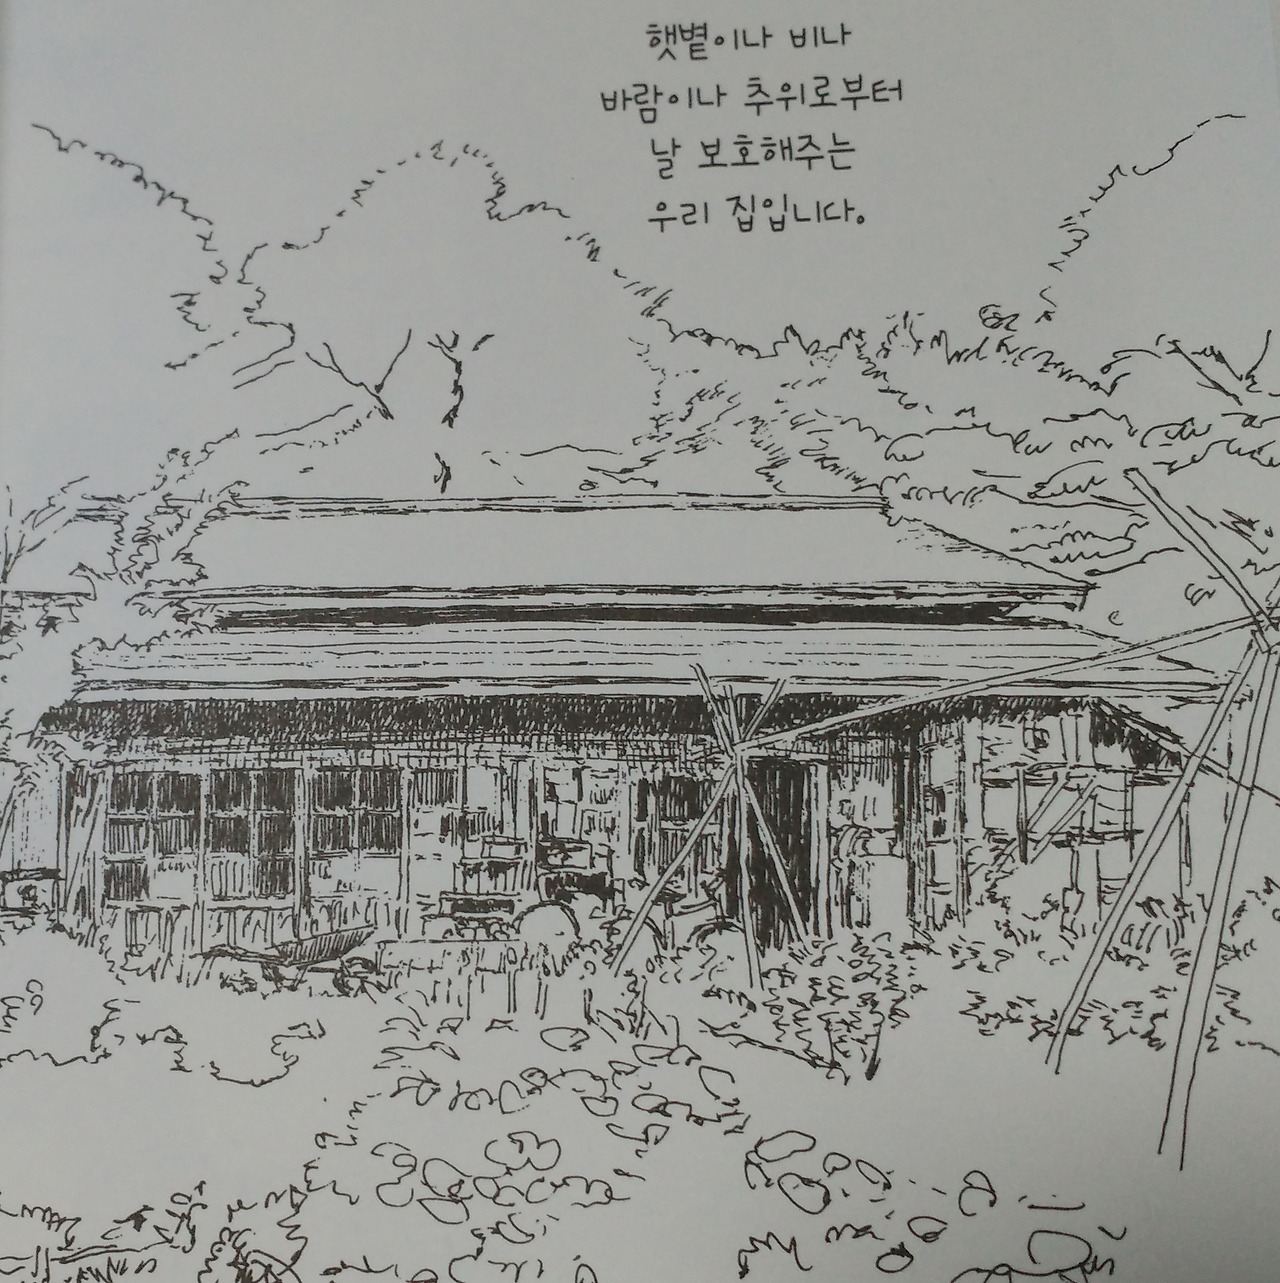 햇볕이나 비나
바람이나 추위로부터
날 보호해주는
우리 집입니다.